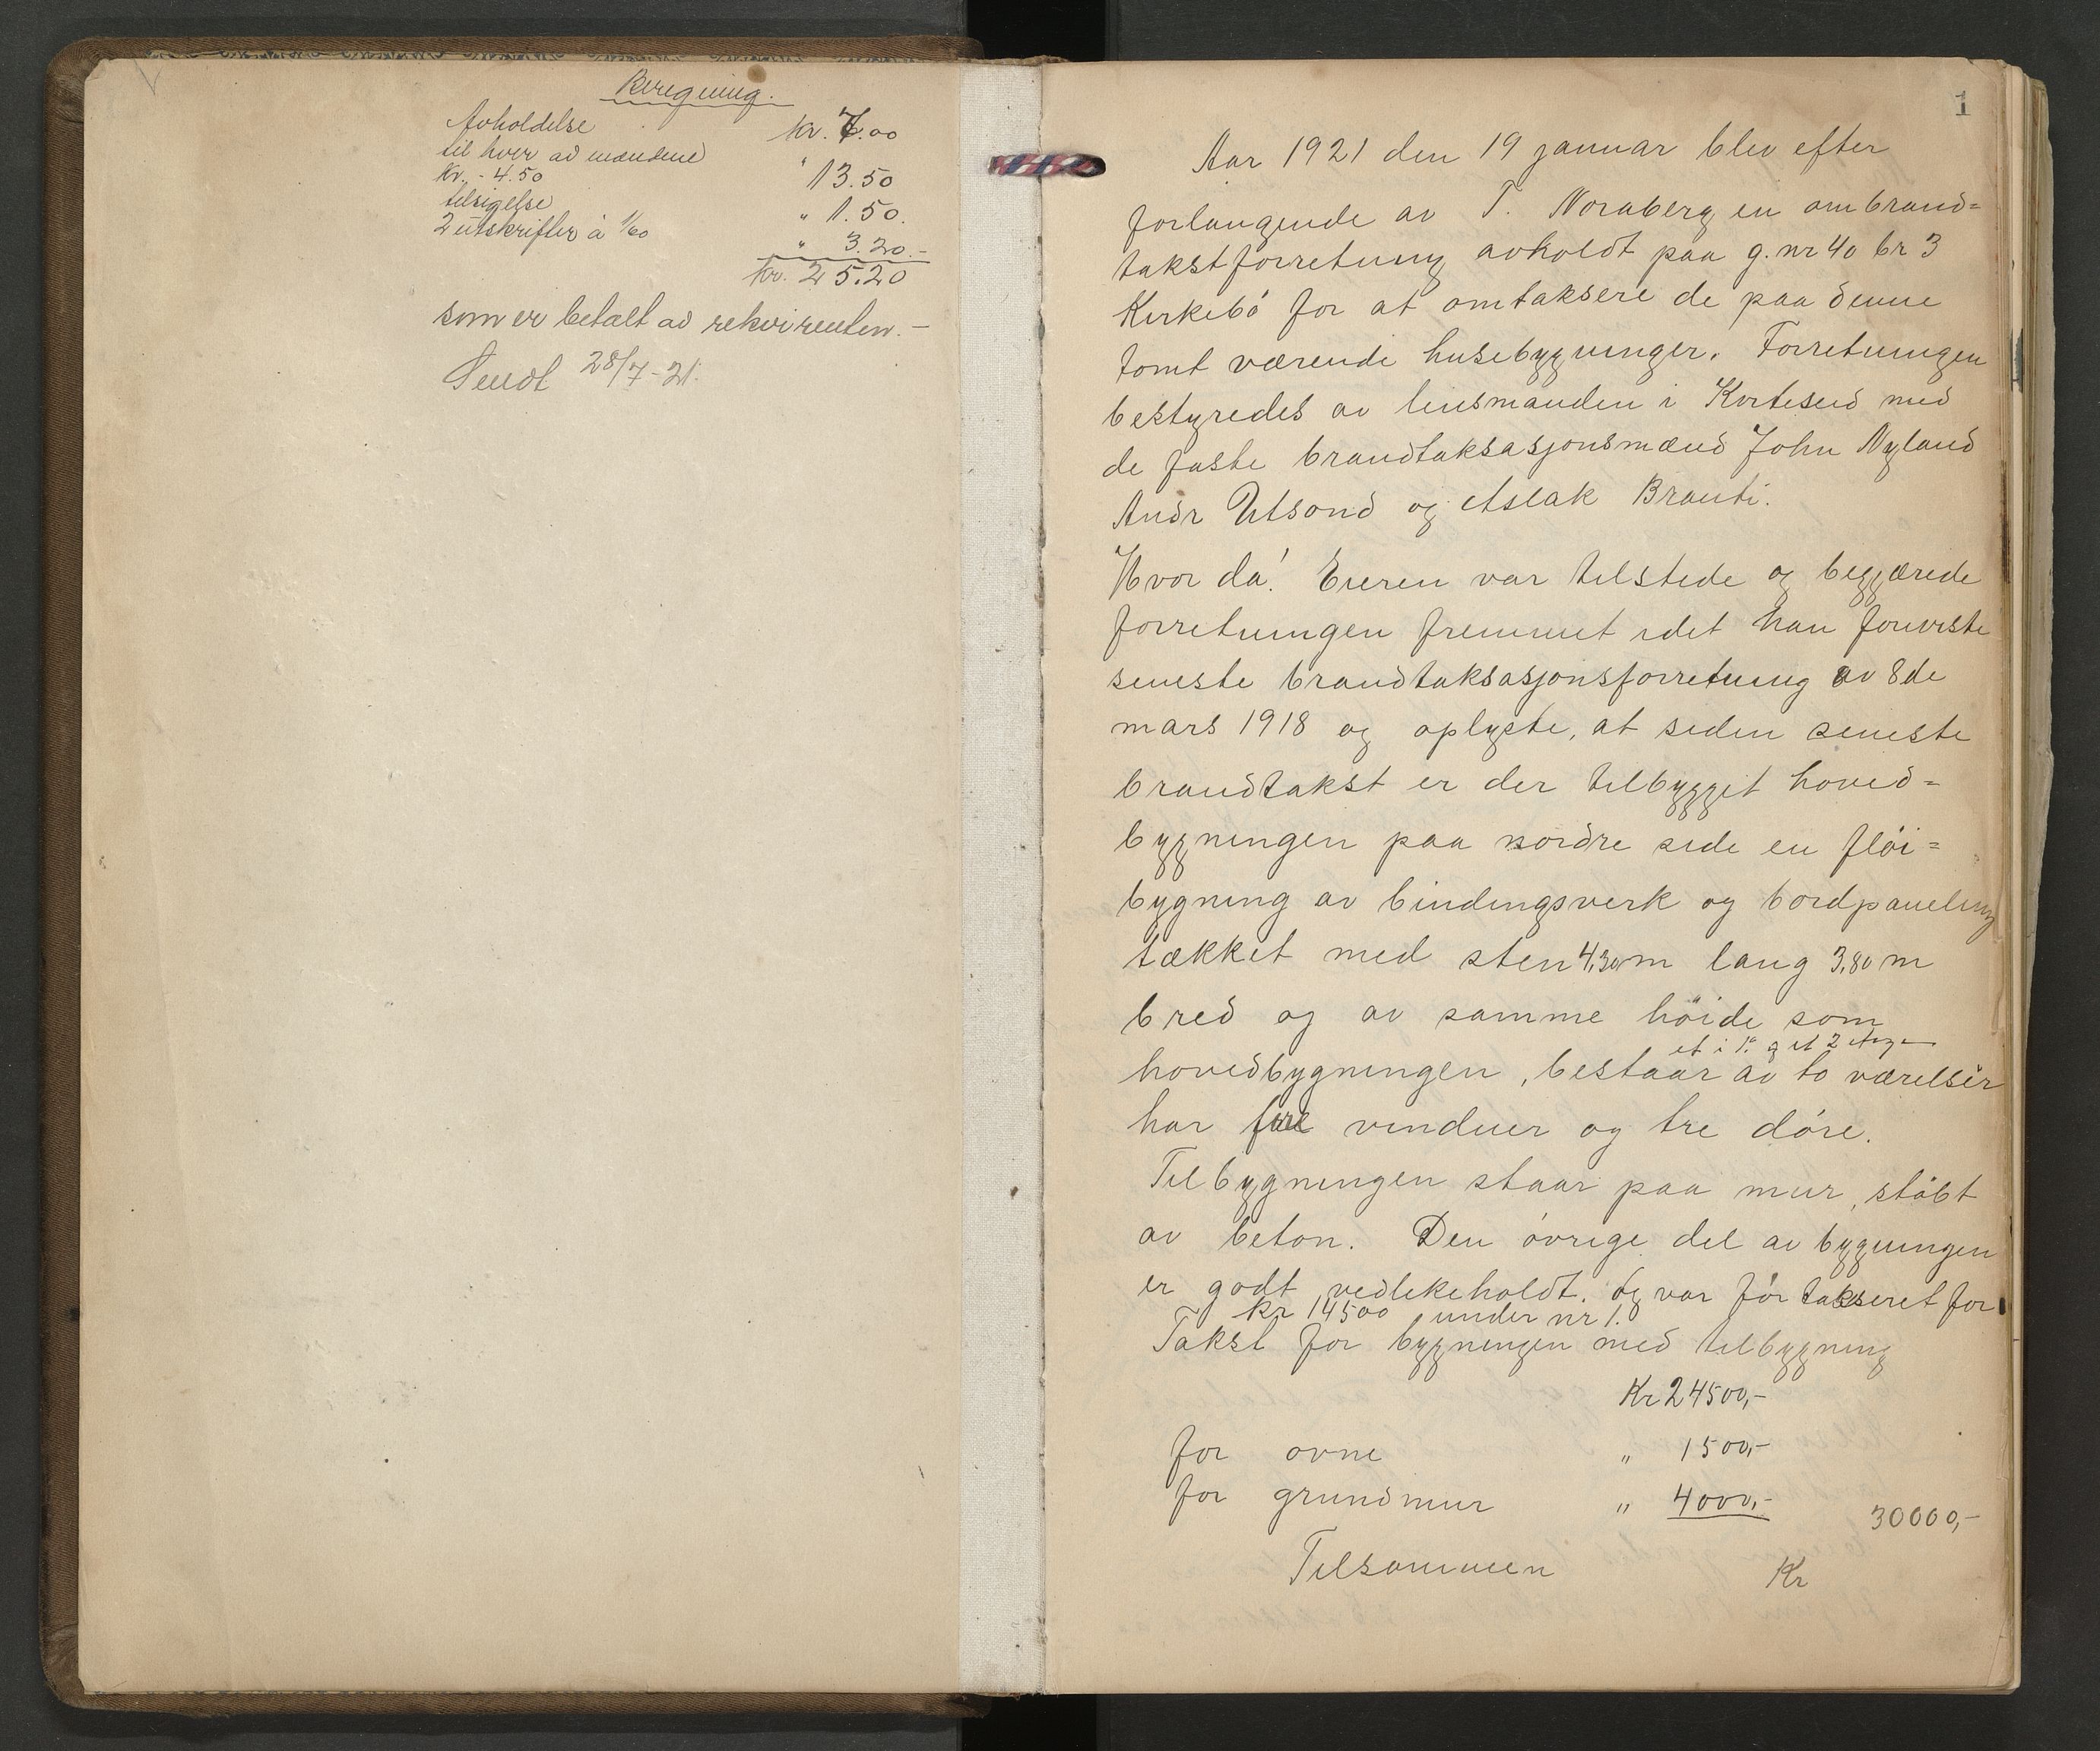 Beregning.
Avholdelse kr. 7.00
til hver av mændene
kr. - 4.50 " 13.50
tilsigelse " 1.50.
2 utskrifter à 1/60 " 3.20.-
kr. 25.20
som er betalt av rekvirenten. -
Sendt 28/7-21.
1
Aar 1921 den 19 januar blev efter
forlangende av T. Noraberg en ombrand=
takstforretning avholdt paa g.nr 40 br 3
Kirkebö for at omtaksere de paa denne
tomt værende husebygninger. Forretningen
bestyredes av lensmanden i Kviteseid med
de faste brandtaksasjonsmænd John Nyland
Andr Utsond og Aslak Brauti.
Hvor da! Eieren var tilstede og begjærede
forretningen fremmet idet han foreviste
seneste brandtaksasjonsforretning av 8de
mars 1918 og oplyste, at siden seneste
brandtakst er der tilbygget hoved=
bygningen paa nordre side en flöi=
bygning av bindingsverk og bordpaneling
tækket med sten 4,30 m lang 3,80 m
bred og av samme höide som
et i 1ste og et 2 etage
hovedbygningen, bestaar av to værelser
har fire vinduer og tre döre.
Tilbygningen staar paa mur, stöbt
av beton. Den övrige del av bygningen
er godt vedlikeholdt. og var för taksseret for
kr 14500 under nr 1.
Takst for bygningen med tilbygning
Kr 24500,-
for ovne " 1500,-
for grundmur " 4000,- 30000,-
Tilsammen Kr